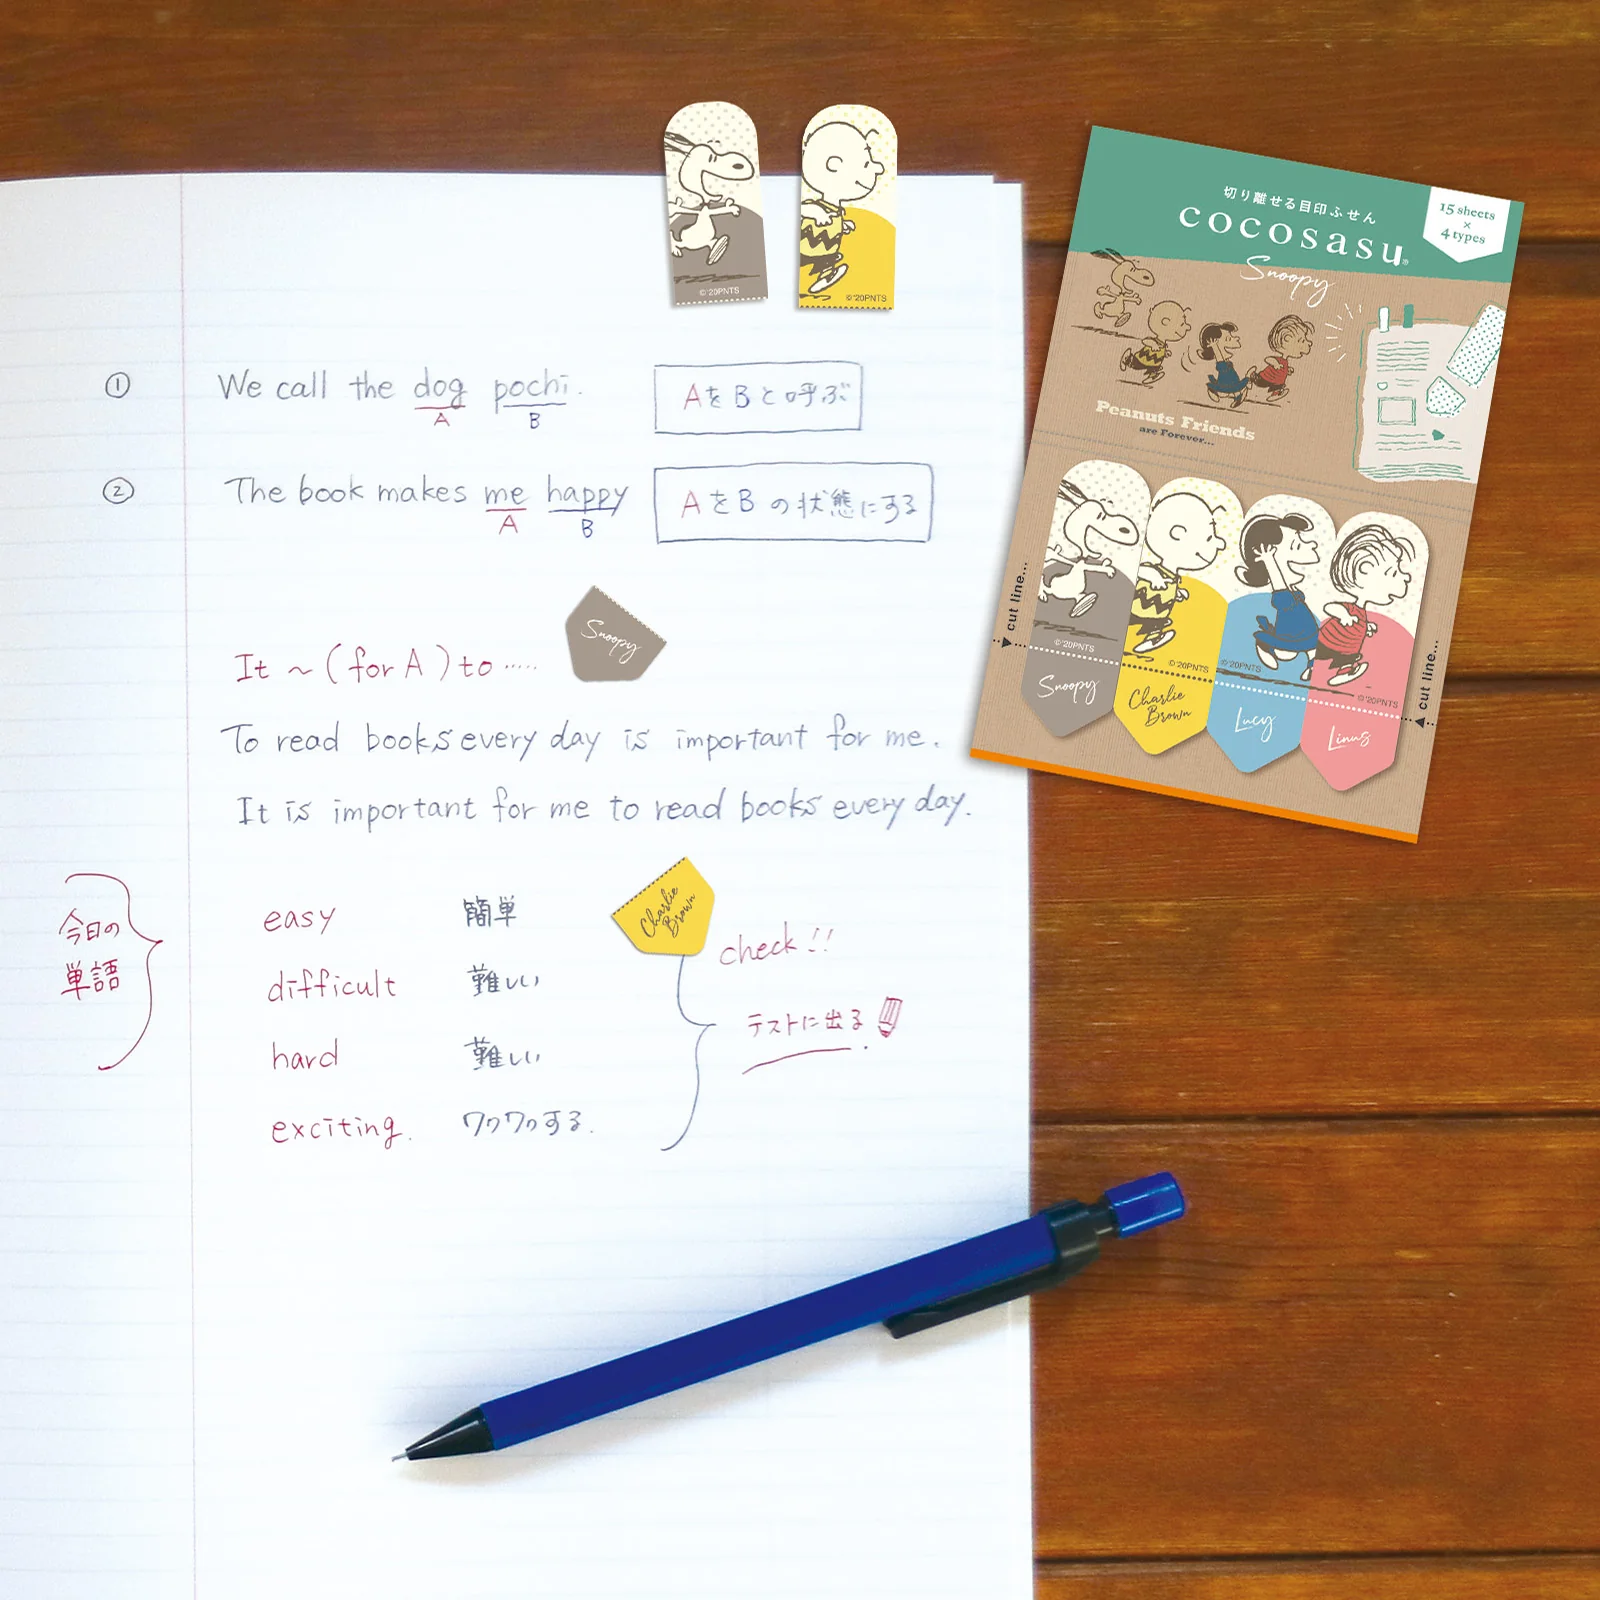 ©'20PNTS
©'20PNTS
① We call the dog pochi. AをBと呼ぶ
A B
② The book makes me happy AをBの状態にする
A B
It ~ (for A) to ......
Snoopy
To read books every day is important for me.
It is important for me to read books every day.
今日の
単語
easy 簡単
difficult 難しい
hard 難しい
exciting. ワクワクする.
Charlie
Brown
check!!
テストに出る
切り離せる目印ふせん
cocosasu®
Snoopy
15 sheets
×
4 types
Peanuts Friends
are Forever...
cut line...
©'20PNTS
©'20PNTS
©'20PNTS
©'20PNTS
Snoopy
Charlie
Brown
Lucy
Linus
cut line...